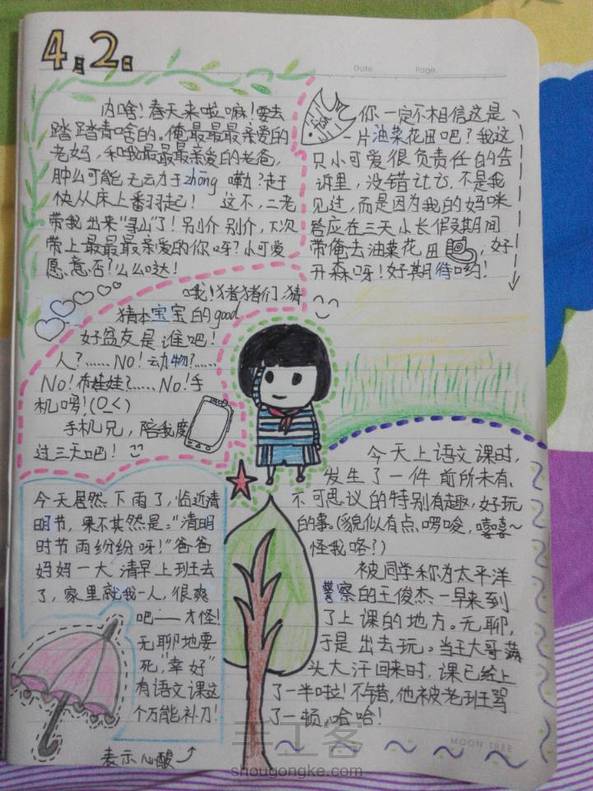 4月2日
Date
Page
内啥！春天来啦嘛！要去
踏踏青啥的。俺最最最亲爱的
老妈，和我最最最亲爱的老爸，
肿么可能无云力于zhōng嘞？赶于
快从床上翻起！这不，二老
带我出来"寻山"了！别介别介，下次
带上最最最亲爱的你呀？小可爱
愿意否？么么哒！
你一定不相信这是
片油菜花田吧？我这
只小可爱很负责任的告
诉里，没错让它，不是我
见过，而是因为我的妈咪
答应在三天小长假期间
带俺去油菜花田，好
开森呀！好期待哟！
哦！猪猪们猜
猜本宝宝的good
好盆友是谁吧！
人？……No！动物？……
No！布娃娃？……No！手
机啰！
手机兄，陪我度
过三天吧！
今天居然下雨了，临近清
明节，果不其然是："清明
时节雨纷纷呀！"爸爸
妈妈一大清早上班去
了，家里就我一人，很爽
吧——才怪！
无聊地要
死，"幸好"
有语文课这
个万能补刀！
表示心酸
今天上语文课时，
发生了一件前所未有、
不可思议的特别有趣，好玩
的事。(貌似有点啰唆，嘻嘻~
怪我咯？)
被同学称为太平洋
警察的王俊杰一早来到
了上课的地方。无聊，
于是出去玩。当王大哥满
头大汗回来时，课已经上
了一半啦！不错，他被老班骂
了一顿，哈哈！
MOON TREE
手工客
shougongke.com